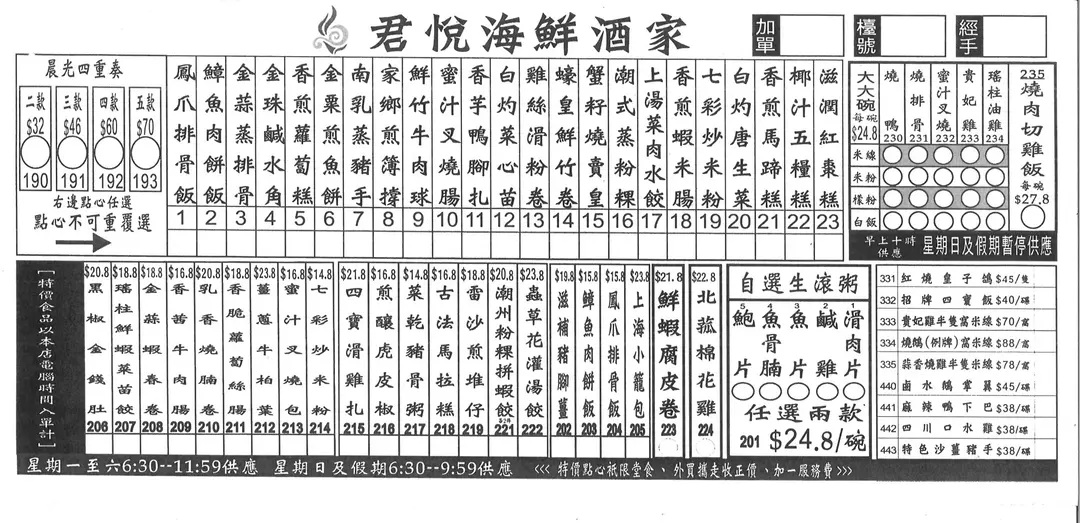 君悅海鮮酒家
加單
檯號
經手
晨光四重奏
二款 $32 190
三款 $46 191
四款 $60 192
五款 $70 193
右邊點心任選
點心不可重覆選
鳳爪排骨飯 1
鱆魚肉餅飯 2
金蒜蒸排骨 3
金珠鹹水角 4
香煎蘿蔔糕 5
金粟煎魚餅 6
南乳蒸豬手 7
家鄉煎薄撐 8
鮮竹牛肉球 9
蜜汁叉燒腸 10
香芋鴨腳扎 11
白灼菜心苗 12
雞絲滑粉卷 13
蠔皇鮮竹卷 14
蟹籽燒賣皇 15
潮式蒸粉粿 16
上湯菜肉水餃 17
香煎蝦米腸 18
七彩炒米粉 19
白灼唐生菜 20
香煎馬蹄糕 21
椰汁五糧糕 22
滋潤紅棗糕 23
大大碗 每碗 $24.8
燒鴨 230
燒排骨 231
蜜汁叉燒 232
貴妃雞 233
瑤柱油雞 234
米線
米粉
檬粉
白飯
235 燒肉切雞飯 每碗 $27.8
早上十時供應 星期日及假期暫停供應
[特價食品以本店電腦時間入單計]
$20.8 黑椒金錢肚 206
$18.8 瑤柱鮮蝦菜苗餃 207
$18.8 金蒜蝦春卷 208
$16.8 香茜牛肉腸 209
$20.8 乳香燒腩卷 210
$18.8 香脆蘿蔔絲酥 211
$23.8 薑蔥牛柏葉 212
$16.8 蜜汁叉燒包 213
$14.8 七彩炒米粉 214
$21.8 四寶滑雞扎 215
$16.8 煎釀虎皮椒 216
$14.8 菜乾豬骨粥 217
$16.8 古法馬拉糕 218
$16.8 雷沙煎堆仔 219
$20.8 潮州粉粿拼蝦餃 221
$23.8 蟲草花灌湯餃 222
$19.8 滋補豬腳薑 202
$15.8 鱆魚肉餅飯 203
$15.8 鳳爪排骨飯 204
$23.8 上海小籠包 205
$21.8 鮮蝦腐皮卷 223
$22.8 北菰棉花雞 224
自選生滾粥
5 鮑片
4 魚骨腩
3 魚片
2 鹹雞
1 滑肉片
任選兩款
201 $24.8/碗
331 紅燒皇子鴿 $45/隻
332 招牌四寶飯 $40/碟
333 貴妃雞半隻窩米線 $70/窩
334 燒鵝(例牌)窩米線 $88/窩
335 蒜香燒雞半隻窩米線 $78/窩
440 鹵水鵝掌翼 $45/碟
441 麻辣鴨下巴 $38/碟
442 四川口水雞 $38/碟
443 特色沙薑豬手 $38/碟
星期一至六6:30--11:59供應 星期日及假期6:30--9:59供應 <<< 特價點心祇限堂食、外買攜走收正價、加一服務費>>>